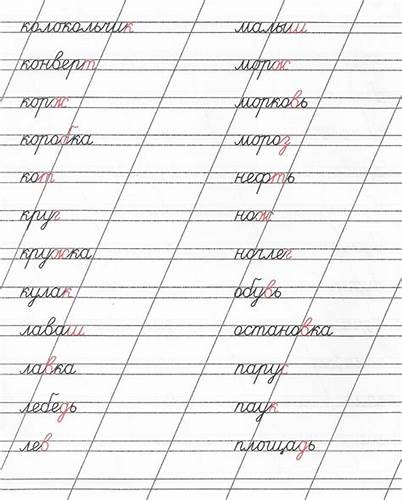 колокольчик малыш
конверт морж
корж морковь
коробка мороз
кот нефть
круг нож
кружка ночлег
кулак обувь
лаваш остановка
лавка парус
лебедь паук
лев площадь